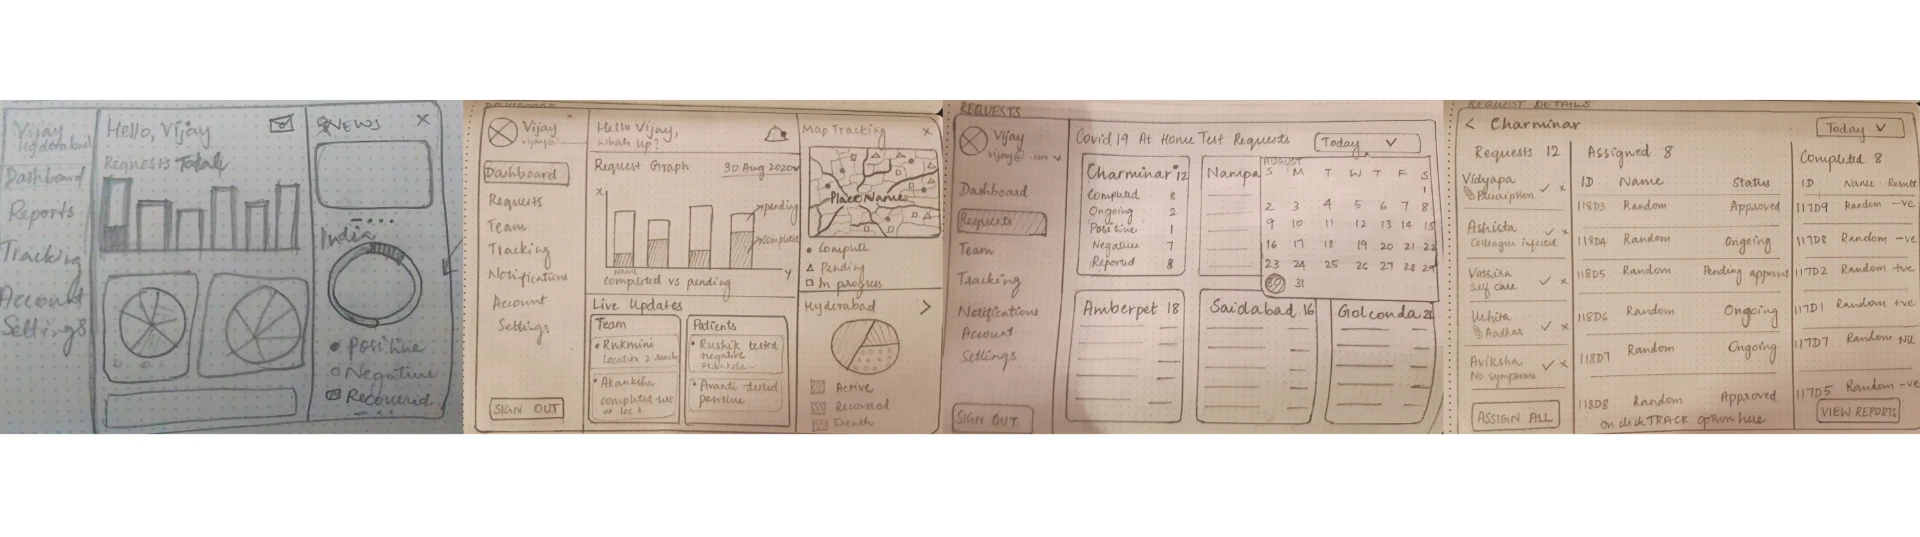 Vijay
Hyderabad
Dashboard
Reports
Tracking
Account
Settings
Hello, Vijay
Requests Total
NEWS X
India
Positive
Negative
Recovered
Vijay
vijay@
Dashboard
Requests
Team
Tracking
Notifications
Account
Settings
SIGN OUT
Hello Vijay,
Whats up?
Request Graph
30 Aug 2020
x
pending
completed
Name
y
completed vs pending
Live Updates
Team
Rukmini
Location 2 reach
Akanksha
completed test
at loc 3
Patients
Rushik tested
negative
Akanksha
Avanti tested
positive
Map Tracking
x
Place Name
Complete
Pending
In progress
Hyderabad
Active
Recovered
Death
REQUESTS
Vijay
vijay@ .com
Dashboard
Requests
Team
Tracking
Notifications
Account
Settings
SIGN OUT
Covid 19 At Home Test Requests
Today
Charminar 12
Completed 8
Ongoing 2
Positive 1
Negative 7
Reported 8
Nampa
AUGUST
S M T W T F S
1
2 3 4 5 6 7 8
9 10 11 12 13 14 15
16 17 18 19 20 21 22
23 24 25 26 27 28 29
30 31
Amberpet 18
Saidabad 16
Golconda 21
REQUEST DETAILS
< Charminar
Today
Requests 12
Vidyapa
Prescription
x
Ashista
Colleague infected
x
Vatsira
Self care
x
Ushita
Aadhar
x
Aviksha
No symptoms
x
ASSIGN ALL
Assigned 8
ID Name Status
118D3 Random Approved
118D4 Random Ongoing
118D5 Random Pending approval
118D6 Random Ongoing
118D7 Random Ongoing
118D8 Random Approved
on click TRACK option here
Completed 8
ID Name Result
117D9 Random -ve
117D8 Random -ve
117D2 Random +ve
117D1 Random +ve
117D7 Random Nil
117D5 Random -ve
VIEW REPORTS